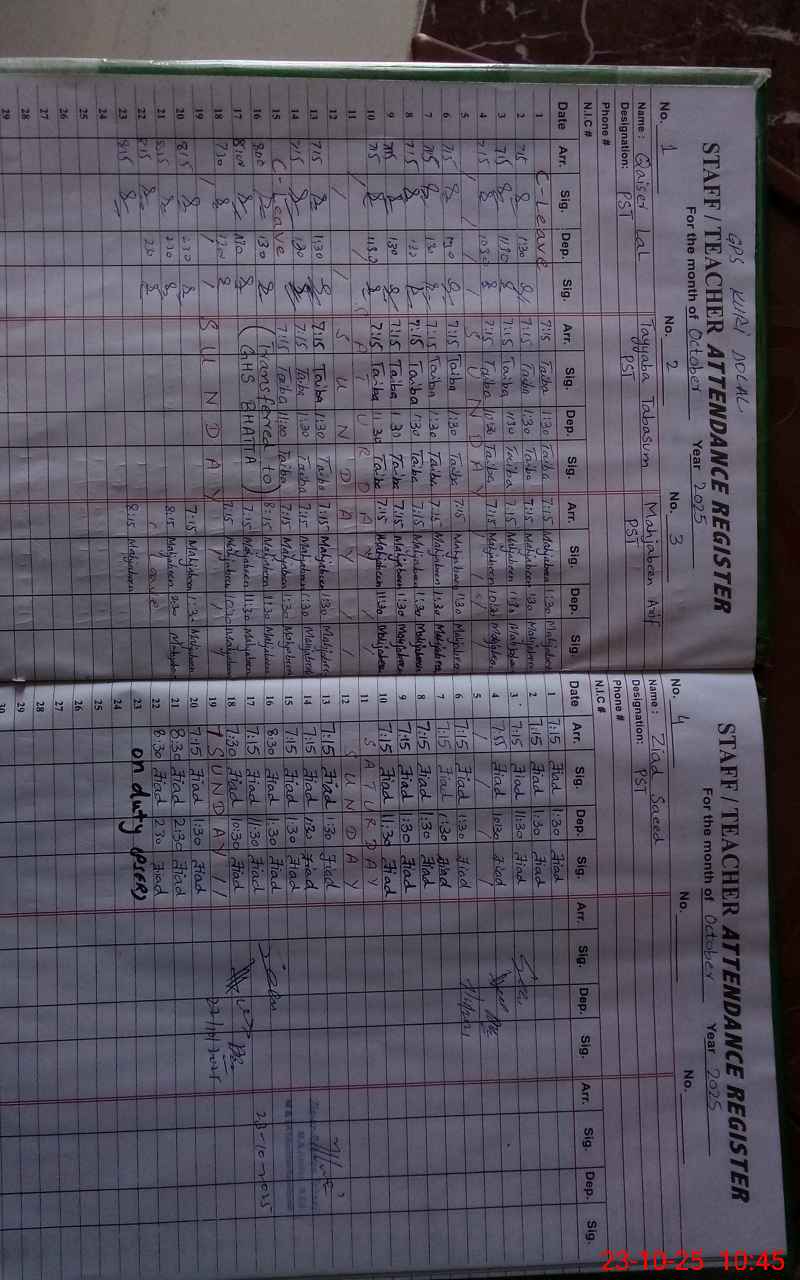 GPS KURI DOLAL
STAFF / TEACHER ATTENDANCE REGISTER
For the month of October Year 2025
No. 1 No. 2 No. 3
Name: Qaiser Lal Tayyaba Tabasum Mahjabeen Arif
Designation: PST PST PST
Phone #
N.I.C #
Date Arr. Sig. Dep. Sig. Arr. Sig. Dep. Sig. Arr. Sig. Dep. Sig.
1 C-Leave 7:15 Taiba 1:30 Taiba 7:15 Mahjabeen 1:30 Mahjabeen
2 7:15 1:30 7:15 Taiba 1:30 Taiba 7:15 Mahjabeen 1:30 Mahjabeen
3 7:15 11:30 7:15 Taiba 11:30 Taiba 7:15 Mahjabeen 11:30 Mahjabeen
4 7:15 10:30 7:15 Taiba 10:30 Taiba 7:15 Mahjabeen 10:30 Mahjabeen
5 SUNDAY
6 7:15 1:30 7:15 Taiba 1:30 Taiba 7:15 Mahjabeen 1:30 Mahjabeen
7 7:15 1:30 7:15 Taiba 1:30 Taiba 7:15 Mahjabeen 1:30 Mahjabeen
8 7:15 1:30 7:15 Taiba 1:30 Taiba 7:15 Mahjabeen 1:30 Mahjabeen
9 7:15 1:30 7:15 Taiba 1:30 Taiba 7:15 Mahjabeen 1:30 Mahjabeen
10 7:15 11:30 7:15 Taiba 11:30 Taiba 7:15 Mahjabeen 11:30 Mahjabeen
11 SATURDAY
12 SUNDAY
13 7:15 1:30 7:15 Taiba 1:30 Taiba 7:15 Mahjabeen 1:30 Mahjabeen
14 7:15 1:30 7:15 Taiba 1:30 Taiba 7:15 Mahjabeen 1:30 Mahjabeen
15 C-Leave 7:15 Taiba 1:30 Taiba 7:15 Mahjabeen 1:30 Mahjabeen
16 8:00 1:30 (Transferred to) 8:15 Mahjabeen 1:30 Mahjabeen
17 8:00 (GHS BHATTA) 7:15 Mahjabeen 11:30 Mahjabeen
18 7:30 7:15 Mahjabeen 10:30 Mahjabeen
19 SUNDAY
20 8:15 2:30 7:15 Mahjabeen 1:30 Mahjabeen
21 8:15 2:30 8:15 Mahjabeen 2:30 Mahjabeen
22 8:15 2:30 Leave
23 8:15 8:15 Mahjabeen
24
25
26
27
28
29
STAFF / TEACHER ATTENDANCE REGISTER
For the month of October Year 2025
No. 4 No. No.
Name: Ziad Saeed
Designation: PST
Phone #
N.I.C #
Date Arr. Sig. Dep. Sig. Arr. Sig. Dep. Sig. Arr. Sig. Dep. Sig.
1 7:15 Ziad 1:30 Ziad
2 7:15 Ziad 1:30 Ziad
3 7:15 Ziad 11:30 Ziad
4 7:15 Ziad 10:30 Ziad
5
6 7:15 Ziad 1:30 Ziad
7 7:15 Ziad 1:30 Ziad
8 7:15 Ziad 1:30 Ziad
9 7:15 Ziad 1:30 Ziad
10 7:15 Ziad 11:30 Ziad
11 SATURDAY
12 SUNDAY
13 7:15 Ziad 1:30 Ziad
14 7:15 Ziad 1:30 Ziad
15 7:15 Ziad 1:30 Ziad
16 8:30 Ziad 1:30 Ziad
17 7:15 Ziad 11:30 Ziad
18 7:30 Ziad 10:30 Ziad
19 SUNDAY
20 7:15 Ziad 1:30 Ziad
21 8:30 Ziad 2:30 Ziad
22 8:30 Ziad 2:30 Ziad
23 on duty (PSER)
24
25
26
27
28
29
30
23-10-2025
23-10-25 10:45